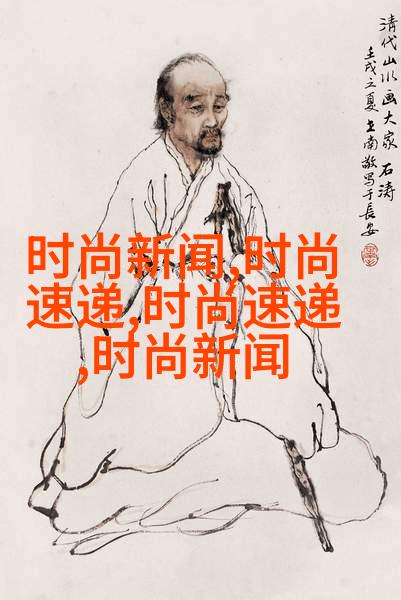 清代山水画大家 石涛
壬戌之夏 王南敬写于長安
时尚新闻,时尚
速递,时尚速递
,时尚新闻